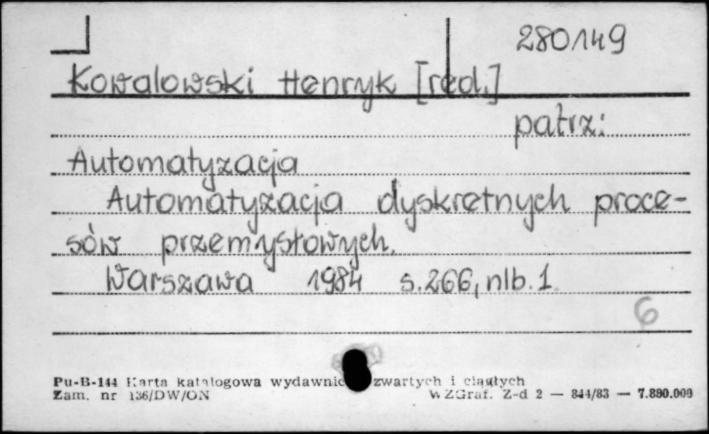 280149
Kowalowski Henryk [red.]
patrz:
Automatyzacja
Automatyzacja dyskretnych proce-
sów przemysłowych.
Warszawa 1984 s.266, nlb.1
6
Pu-B-144 Karta katalogowa wydawnic zwartych i ciągłych
Zam. nr 136/DW/ON WZGraf. Z-d 2 — 844/83 — 7.880.000